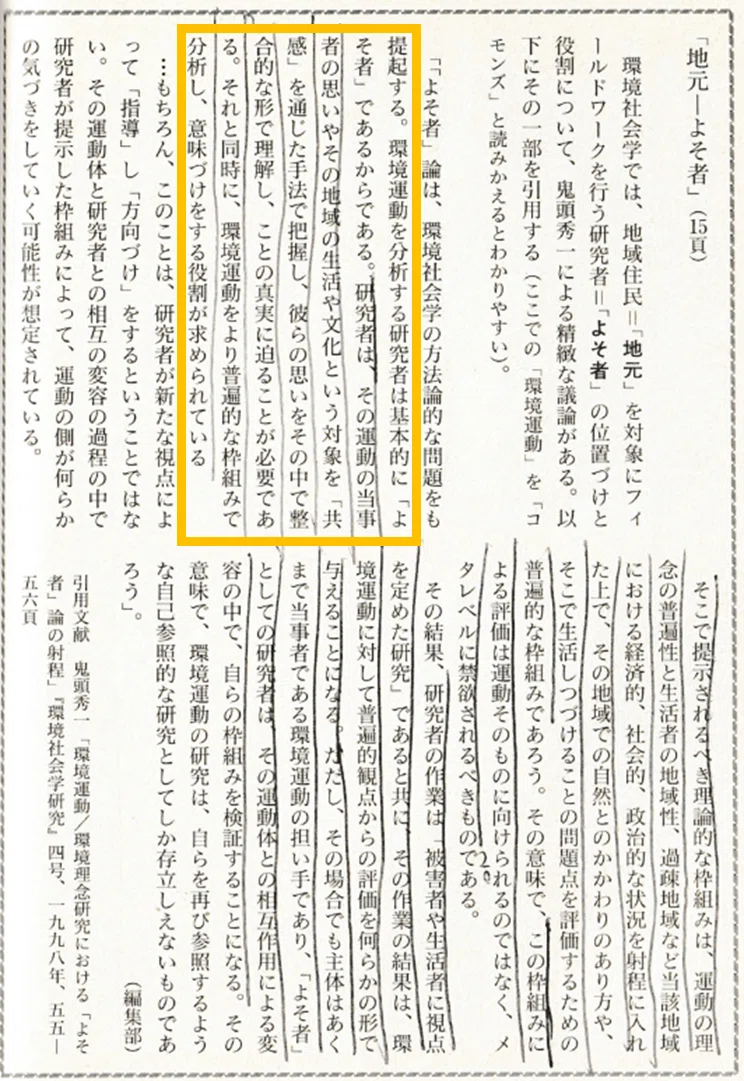 「地元―よそ者」（15頁）
環境社会学では、地域住民＝「地元」を対象にフィ
ールドワークを行う研究者＝「よそ者」の位置づけと
役割について、鬼頭秀一による精緻な議論がある。以
下にその一部を引用する（ここでの「環境運動」を「コ
モンズ」と読みかえるとわかりやすい）。
「「よそ者」論は、環境社会学の方法論的な問題をも
提起する。環境運動を分析する研究者は基本的に「よ
そ者」であるからである。研究者は、その運動の当事
者の思いやその地域の生活や文化という対象を「共
感」を通じた手法で把握し、彼らの思いをその中で整
合的な形で理解し、ことの真実に迫ることが必要であ
る。それと同時に、環境運動をより普遍的な枠組みで
分析し、意味づけをする役割が求められている
…もちろん、このことは、研究者が新たな視点によ
って「指導」し「方向づけ」をするということではな
い。その運動体と研究者との相互の変容の過程の中で
研究者が提示した枠組みによって、運動の側が何らか
の気づきをしていく可能性が想定されている。
そこで提示されるべき理論的な枠組みは、運動の理
念の普遍性と生活者の地域性、過疎地域など当該地域
における経済的、社会的、政治的な状況を射程に入れ
た上で、その地域での自然とのかかわりのあり方や、
そこで生活しつづけることの問題点を評価するための
普遍的な枠組みであろう。その意味で、この枠組みに
よる評価は運動そのものに向けられるのではなく、メ
タレベルに禁欲されるべきものである。
その結果、研究者の作業は「被害者や生活者に視点
を定めた研究」であると共に、その作業の結果は、環
境運動に対して普遍的観点からの評価を何らかの形で
与えることになる。ただし、その場合でも主体はあく
まで当事者である環境運動の担い手であり、「よそ者」
としての研究者は、その運動体との相互作用による変
容の中で、自らの枠組みを検証することになる。その
意味で、環境運動の研究は、自らを再び参照するよう
な自己参照的な研究としてしか存立しえないものであ
ろう」。
（編集部）
引用文献　鬼頭秀一「環境運動／環境理念研究における「よそ
者」論の射程」『環境社会学研究』四号、一九九八年、五五―
五六頁